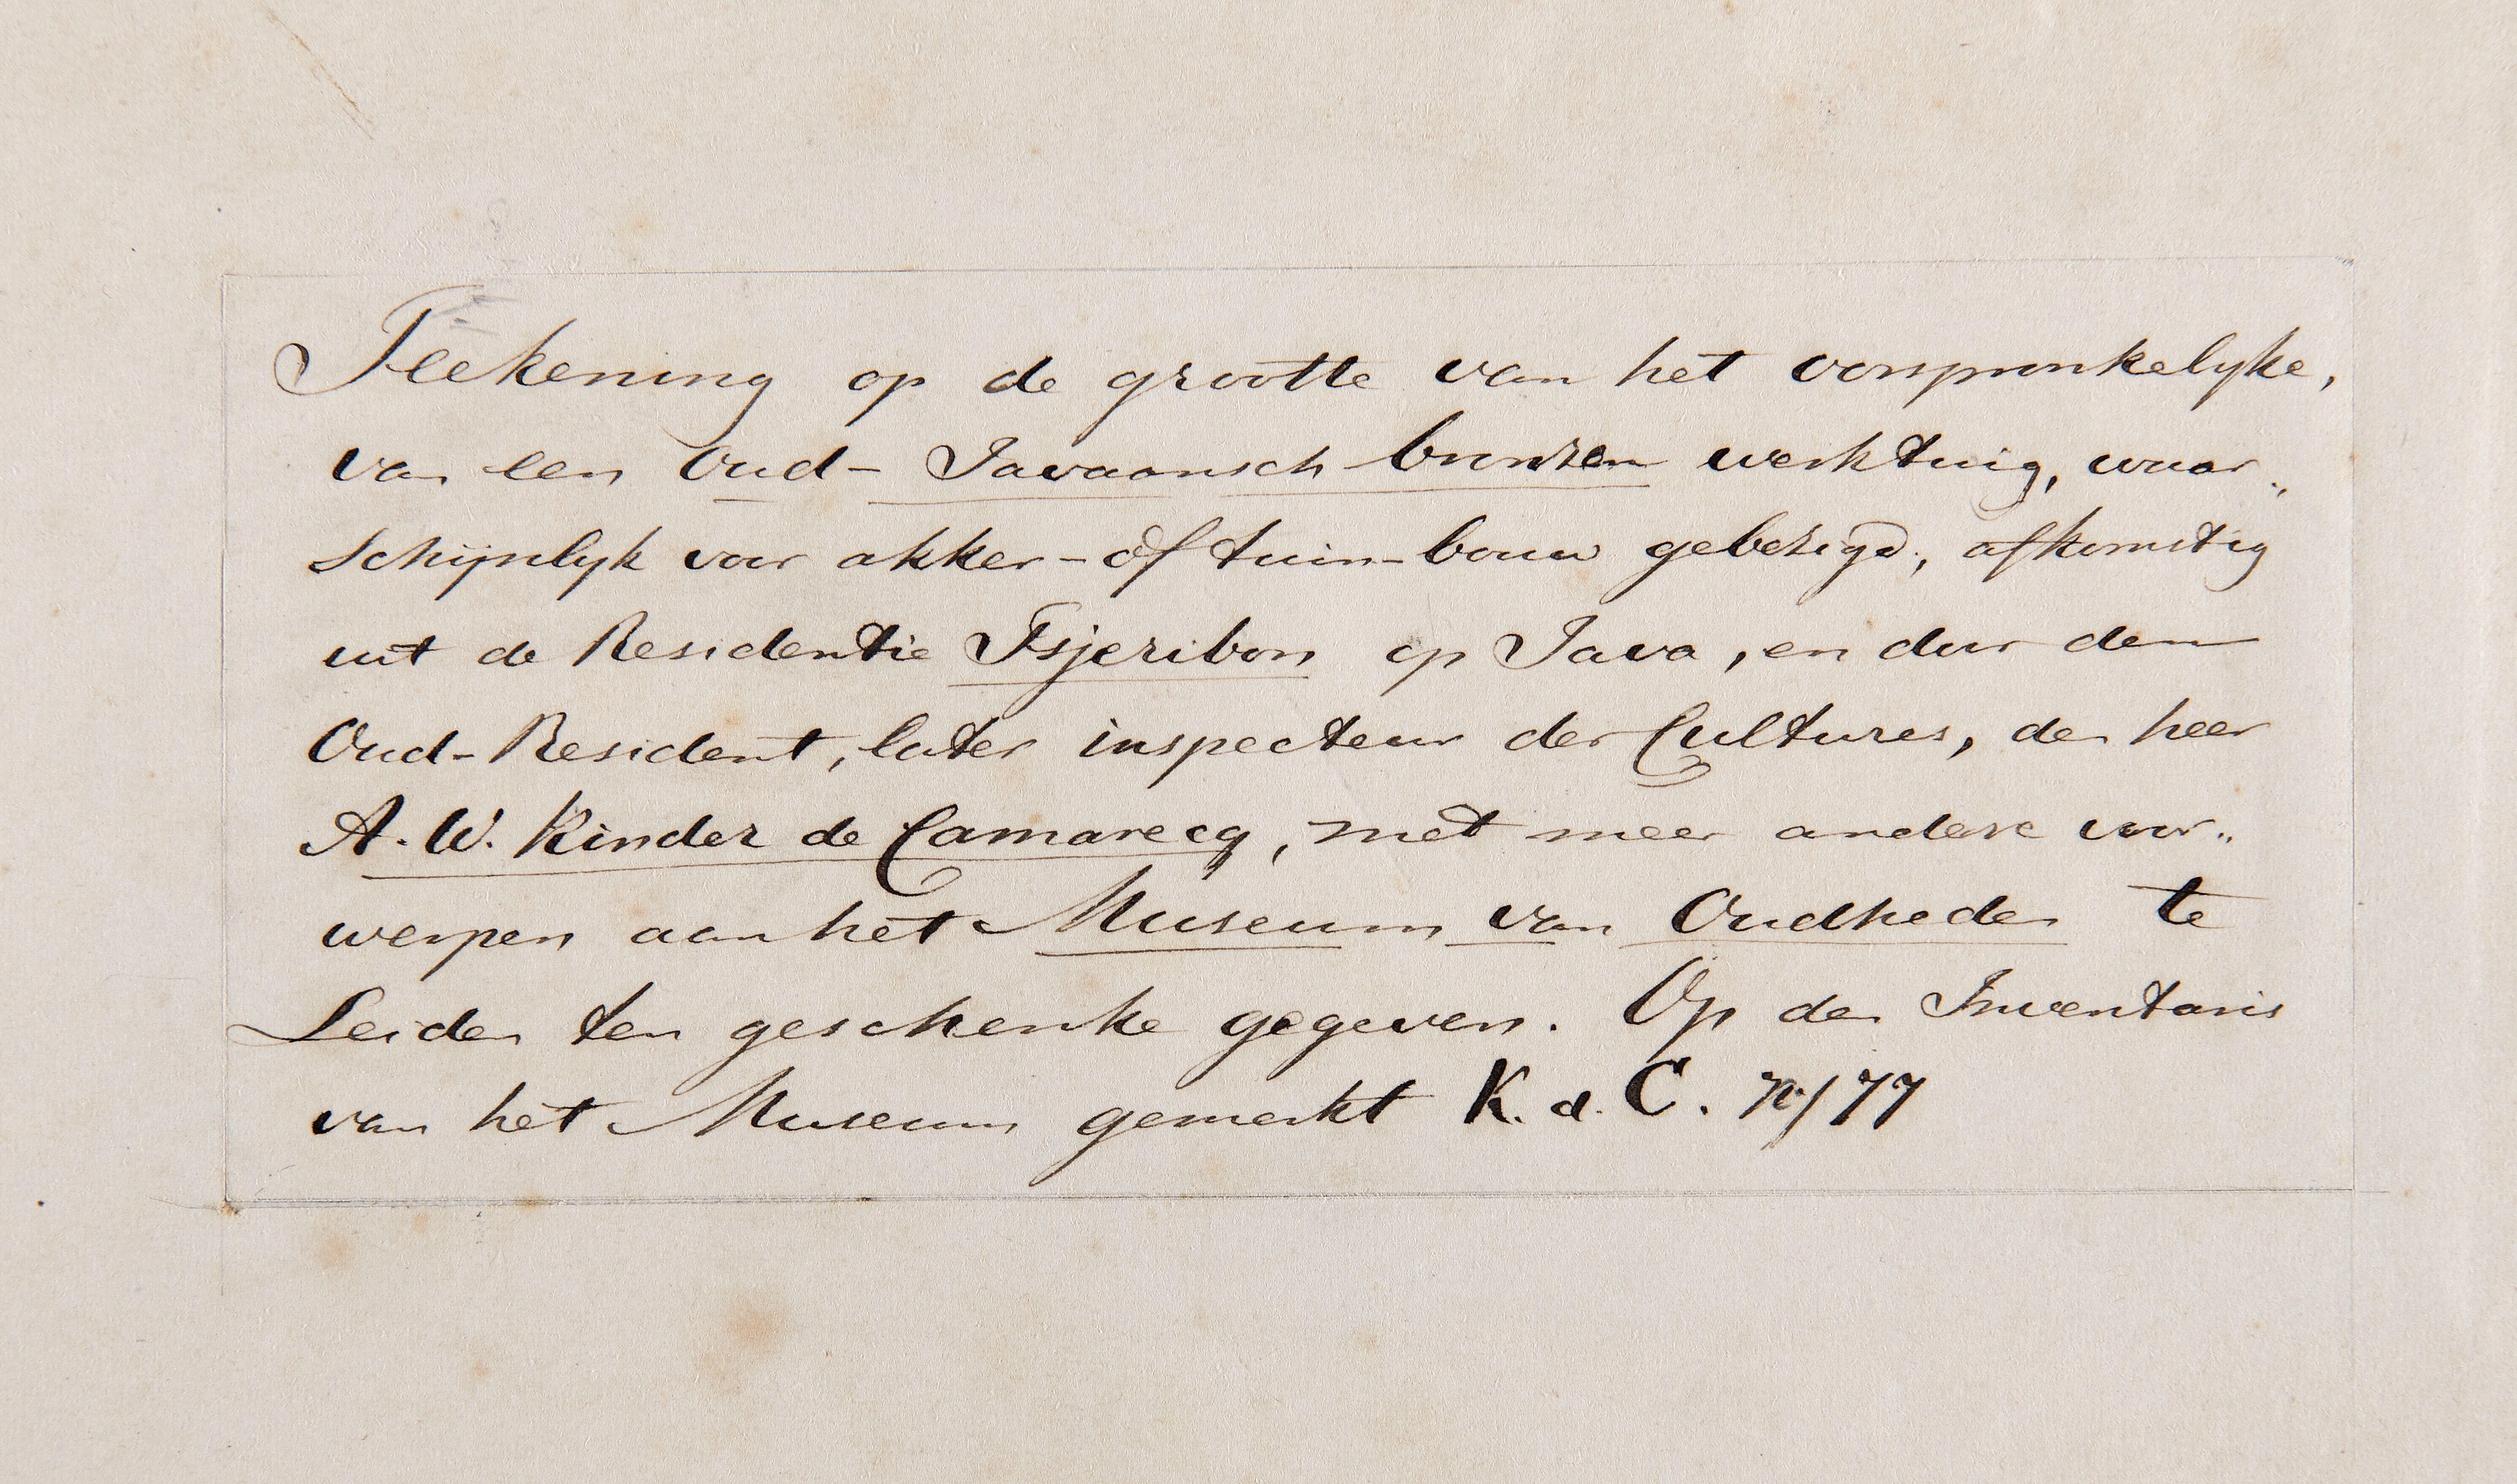 Teekening op de grootte van het oorspronkelyke,
van een Oud-Javaansch bronzen werktuig, waar„
schijnlyk voor akker-of tuin-bouw gebezigd, afkomstig
uit de Residentie Tsjeribon op Java, en door den
Oud-Resident, later inspecteur der Cultures, den heer
A. W. Kinder de Camarecq, met meer andere voor„
werpen aan het Museum van Oudheden te
Leiden ten geschenke gegeven. Op den Inventaris
van het Museum gemerkt K. d. C. 77